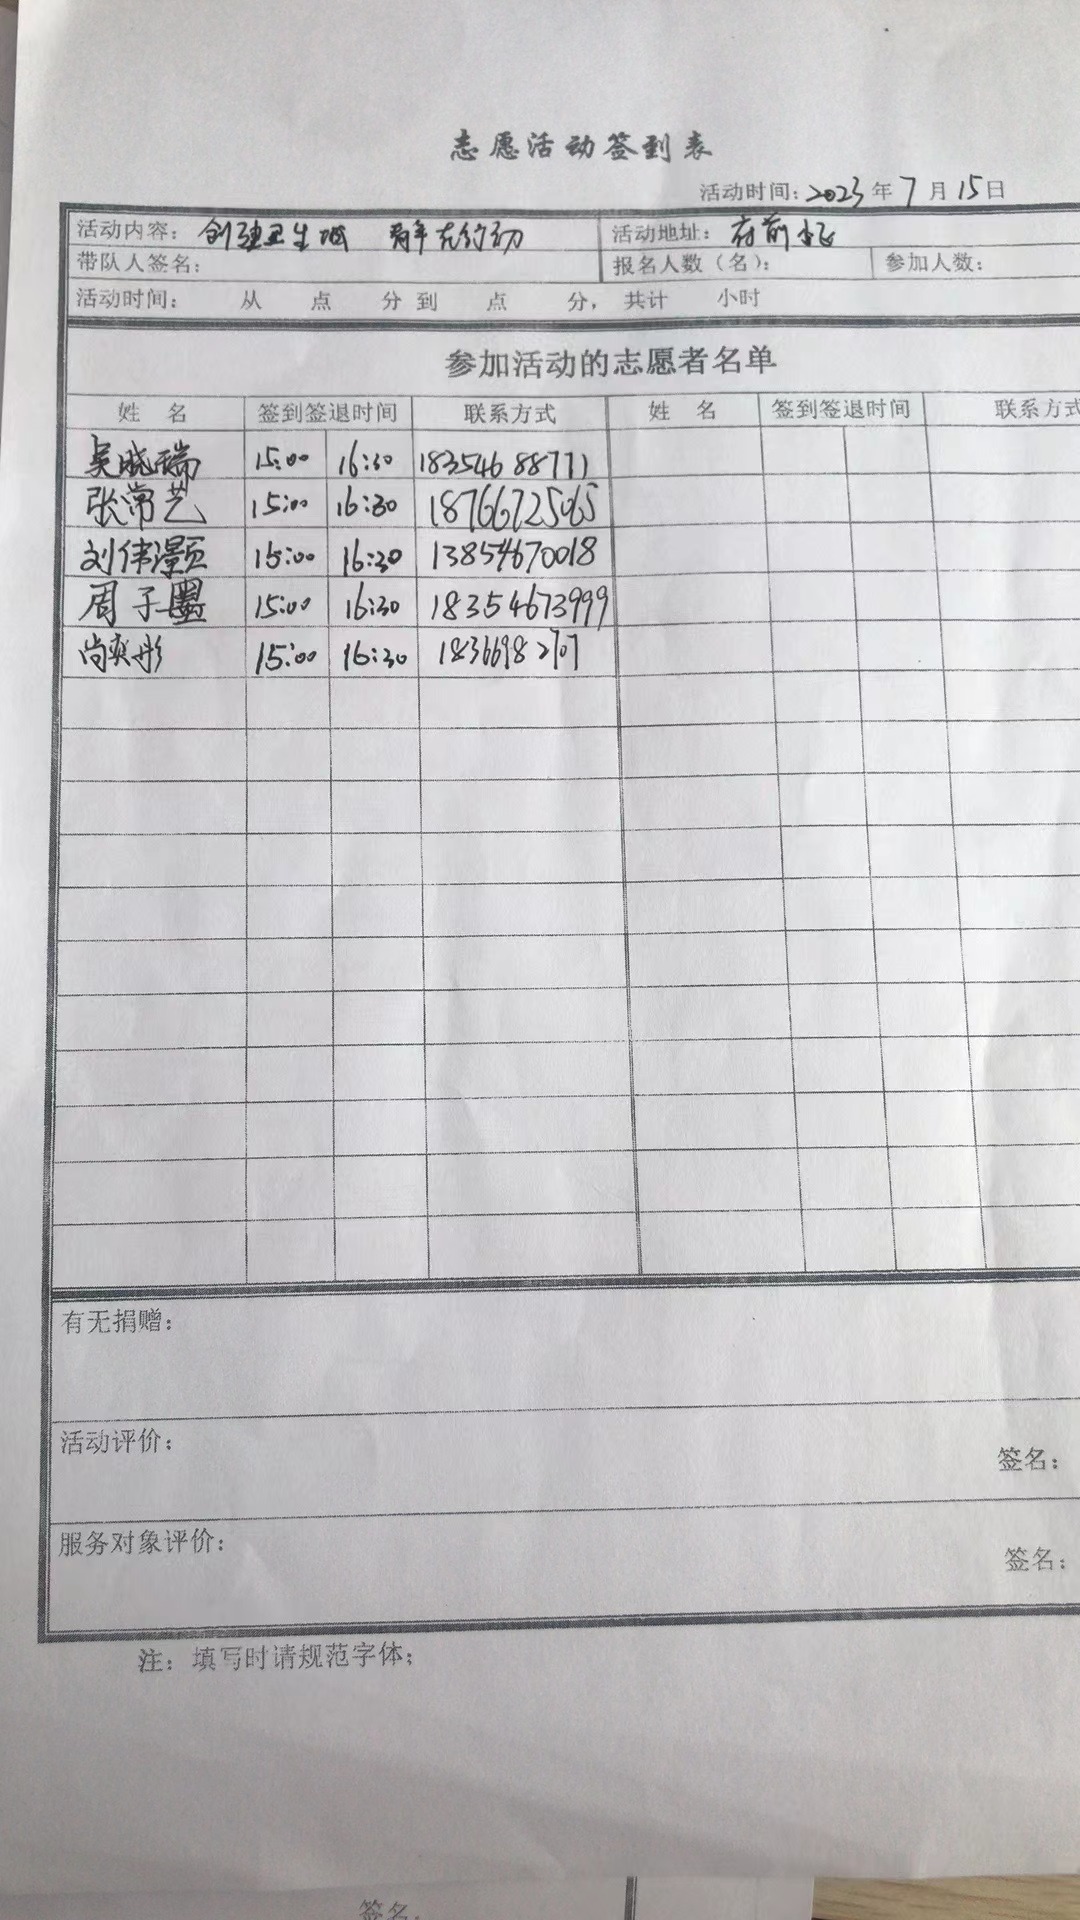 志愿活动签到表
活动时间：2023年7月15日
活动内容：创建卫生城 青年在行动 活动地址：府前街
带队人签名： 报名人数（名）： 参加人数：
活动时间： 从 点 分 到 点 分， 共计 小时
参加活动的志愿者名单
姓 名 签到签退时间 联系方式 姓 名 签到签退时间 联系方式
吴晓瑞 15:00 16:30 18354688771
张常艺 15:00 16:30 18766725065
刘伟灏 15:00 16:30 13854670018
周子墨 15:00 16:30 18354673999
尚奕彤 15:00 16:30 18366982707
有无捐赠：
活动评价：
签名：
服务对象评价：
签名：
注：填写时请规范字体；
签名：